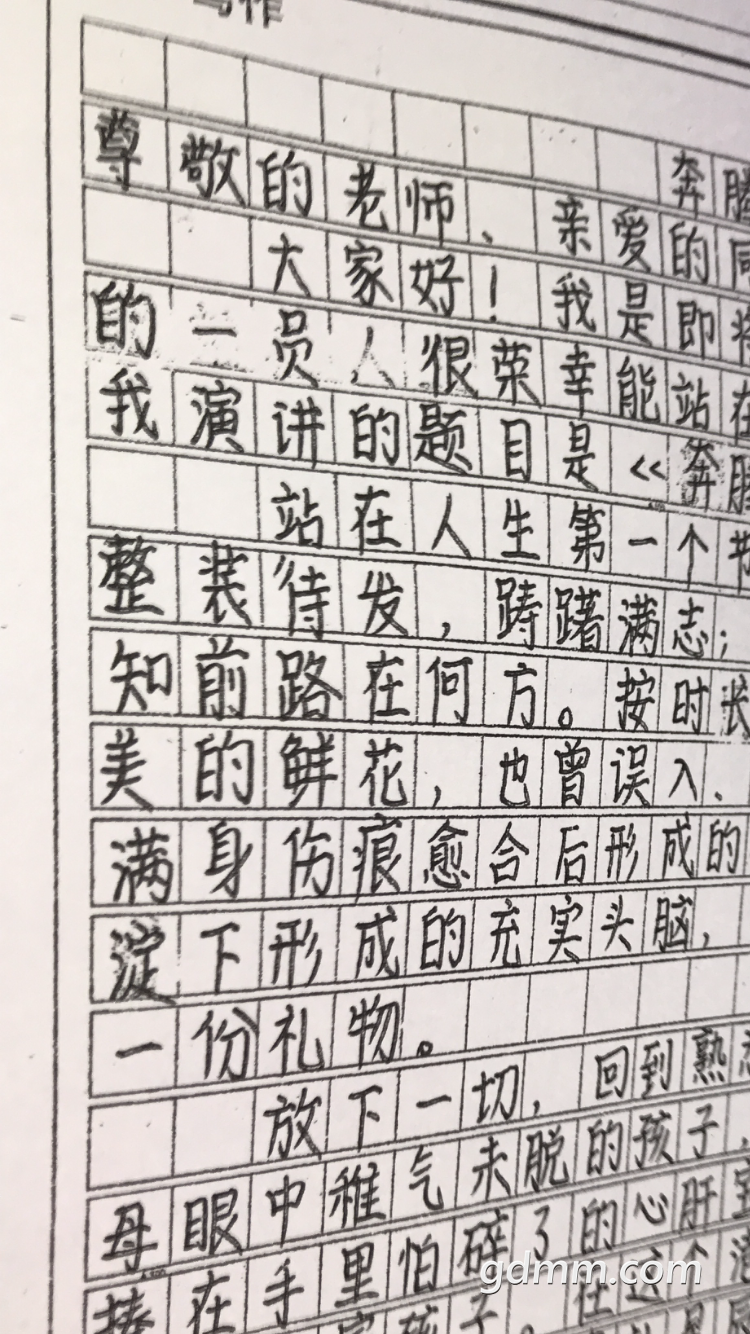 写作
奔腾
尊敬的老师、亲爱的同
大家好！我是即将
的一员人很荣幸能站在
我演讲的题目是《奔腾
站在人生第一个
整装待发，踌躇满志；
知前路在何方。按时长
美的鲜花，也曾误入、
满身伤痕愈合后形成的
淀下形成的充实头脑，
一份礼物。
放下一切，回到熟
母眼中稚气未脱的孩子，
捧在手里怕碎了的心肝宝
在这个
孩子。
gdmm.com